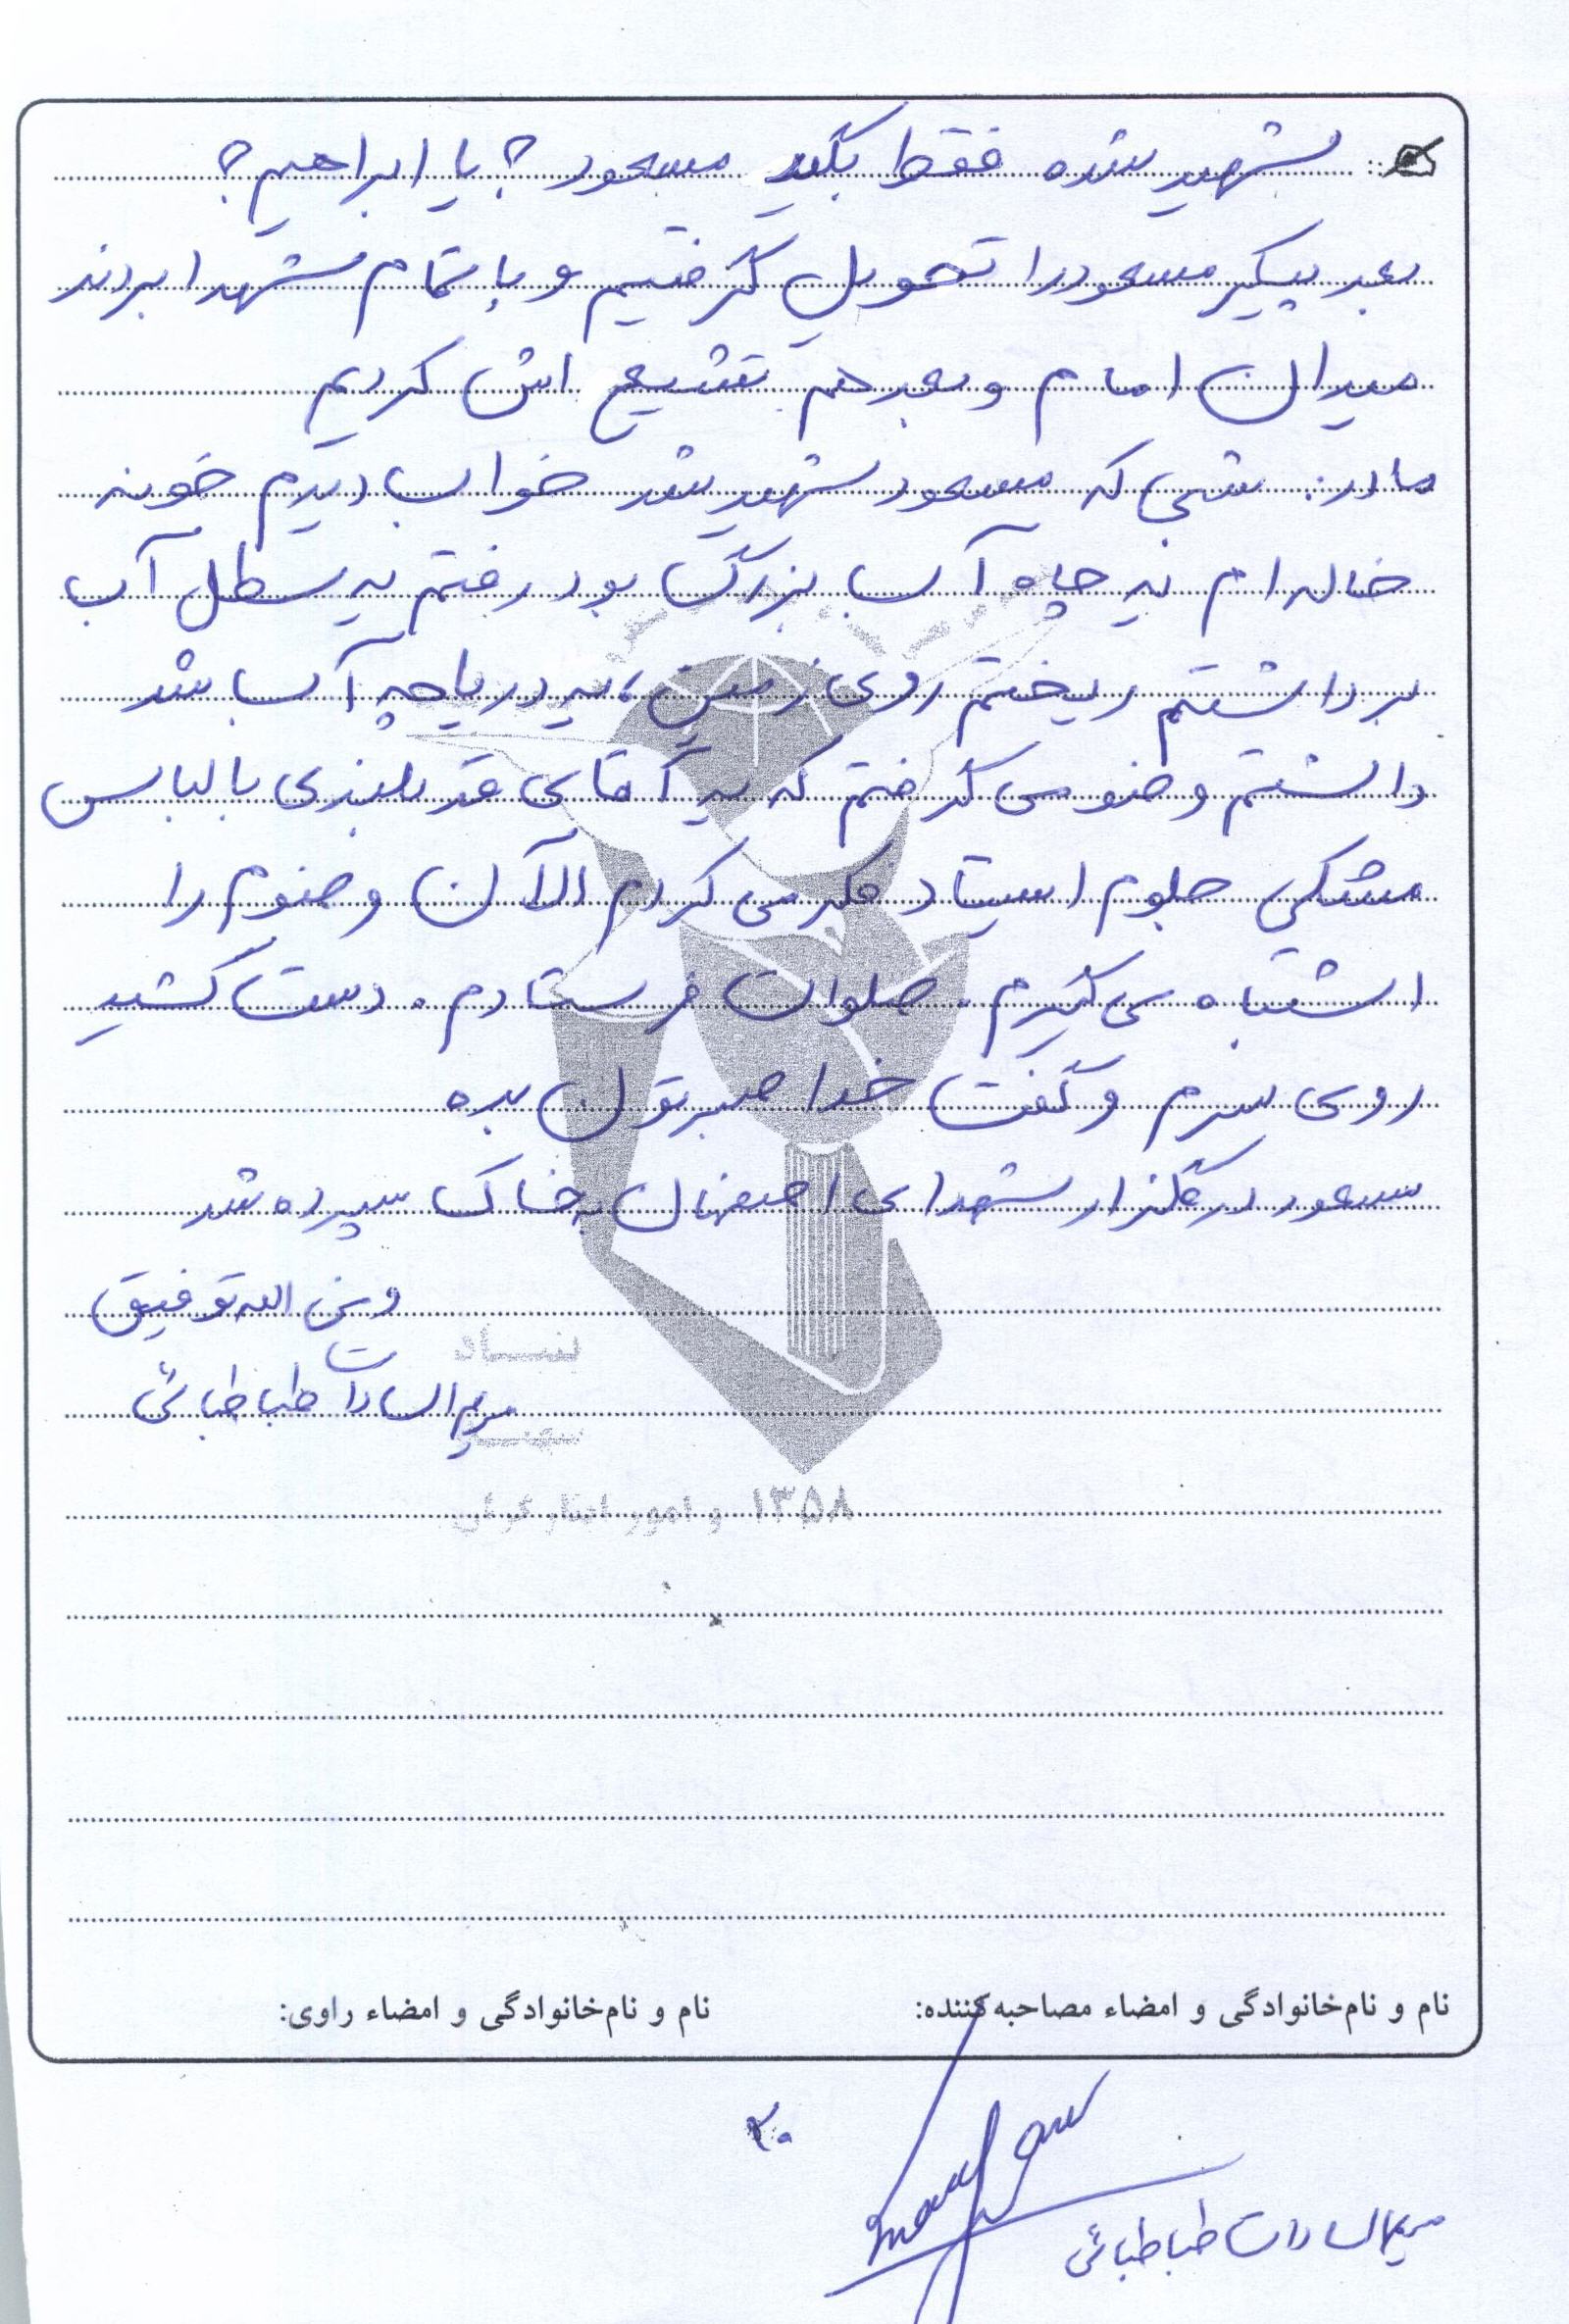 شهید شده فقط بگید مسعود؟ یا ابراهیم؟
بعد پیکر مسعود را تحویل گرفتیم و با تمام شهدا بردند
میدان امام و بعد هم تشییع اش کردیم
مادر: شبی که مسعود شهید شد خواب دیدم خونه
خاله ام یه چاه آب بزرگ بود رفتم یه سطل آب
برداشتم ریختم روی زمین، یه دریاچه آب شد
داشتم وضو می گرفتم که یه آقای قد بلندی با لباس
مشکی جلوم استاد فکر می کردم الآن وضوم را
اشتباه می گیرم. صلوات فرستادم. دست کشید
روی سرم و گفت خدا صبرتون بده
مسعود در گلزار شهدای اصفهان بخاک سپرده شد
ومن الله توفیق
مریم السادات طباطبائی
بنیاد
شهید
۱۳۵۸ و امور ایثارگران
نام و نام‌خانوادگی و امضاء مصاحبه‌کننده: نام و نام‌خانوادگی و امضاء راوی:
۲۰
مریم السادات طباطبائی